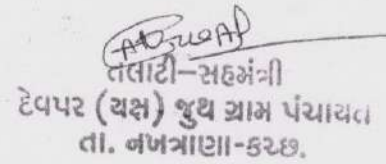 તલાટી–સહમંત્રી
દેવપર (યક્ષ) જુથ ગ્રામ પંચાયત
તા. નખત્રાણા-કચ્છ.